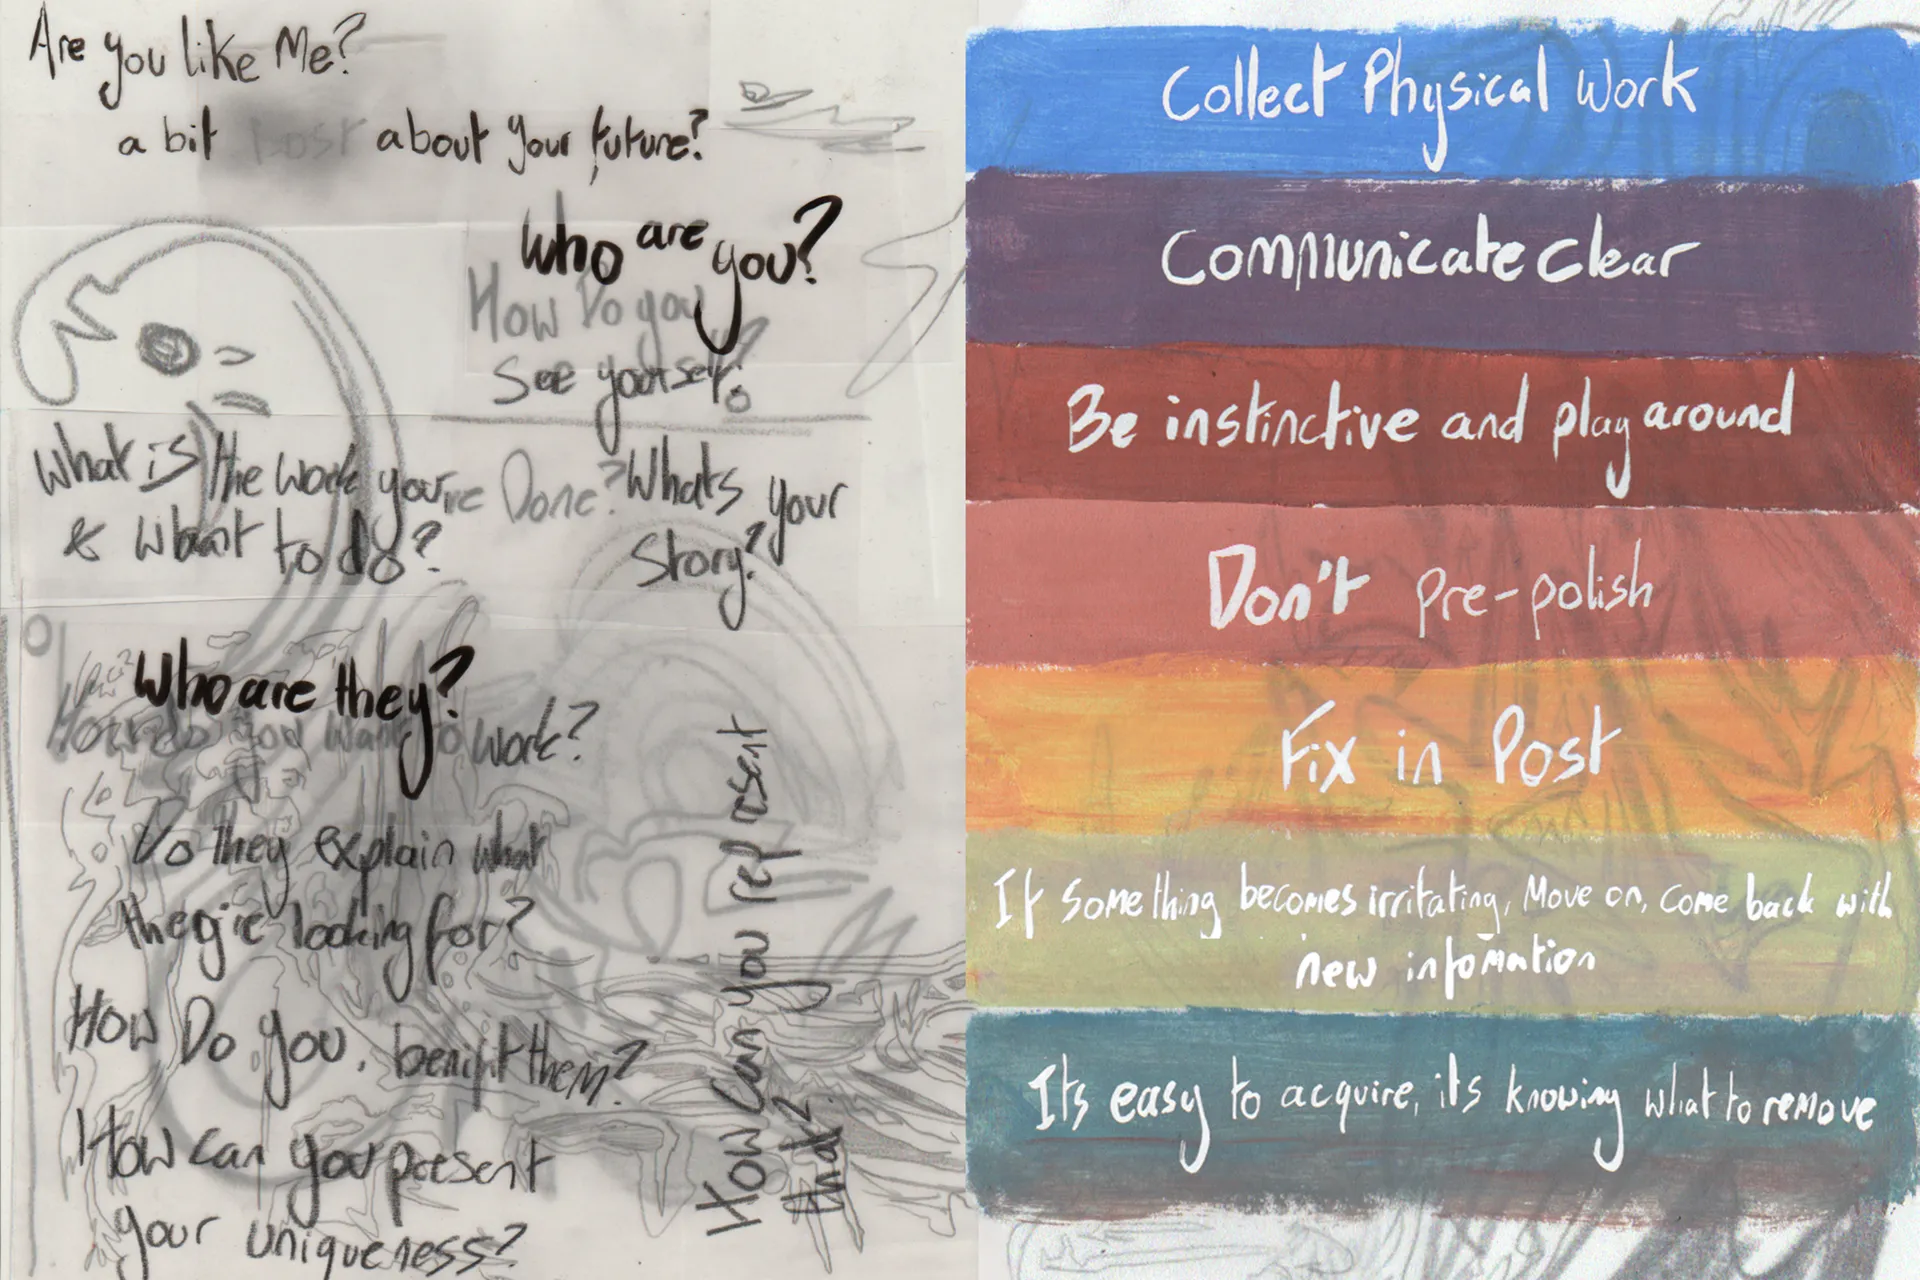 Are you like Me?
a bit lost about your future?
Who are you?
How Do you
See yourself?
What is the work you're Done?
& want to do?
Whats your
Story?
Who are they?
How do you want to work?
Do they explain what
they're looking for?
How Do you, benifit them?
How can you present
your uniqueness?
How can you represent
that?
Collect Physical Work
Communicate clear
Be instinctive and play around
Don't pre-polish
Fix in Post
If something becomes irritating, Move on, come back with
new infomation
It's easy to acquire, it's knowing what to remove